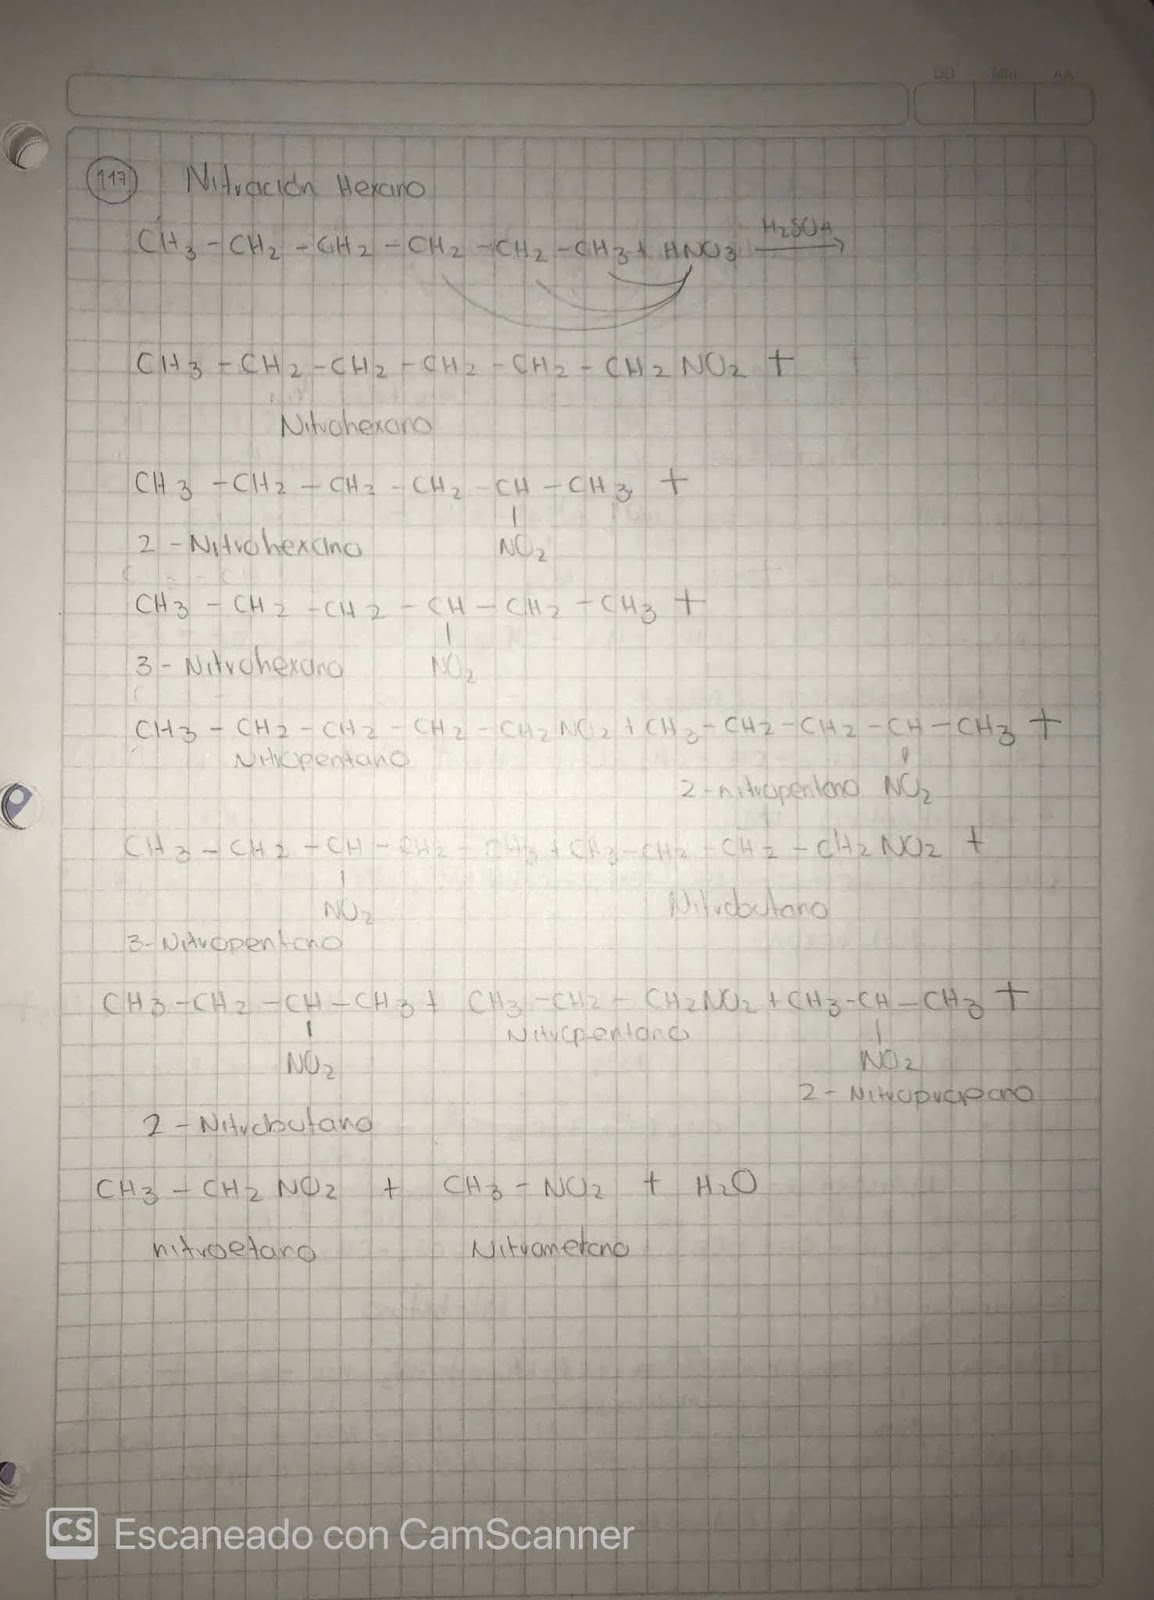 DD MM AA
117 Nitración Hexano
CH3 - CH2 - CH2 - CH2 - CH2 - CH3 + HNO3 H2SO4 →
CH3 - CH2 - CH2 - CH2 - CH2 - CH2 NO2 +
Nitrohexano
CH3 - CH2 - CH2 - CH2 - CH - CH3 +
2 - Nitrohexano NO2
CH3 - CH2 - CH2 - CH - CH2 - CH3 +
3 - Nitrohexano NO2
CH3 - CH2 - CH2 - CH2 - CH2 NO2 + CH3 - CH2 - CH2 - CH - CH3 +
Nitropentano
2 - nitropentano NO2
CH3 - CH2 - CH - CH2 - CH3 + CH3 - CH2 - CH2 - CH2 NO2 +
NO2 Nitrobutano
3 - Nitropentano
CH3 - CH2 - CH - CH3 + CH3 - CH2 - CH2NO2 + CH3 - CH - CH3 +
Nitropentano
NO2 NO2
2 - Nitropropano
2 - Nitrobutano
CH3 - CH2 NO2 + CH3 - NO2 + H2O
nitroetano Nitrometano
CS Escaneado con CamScanner